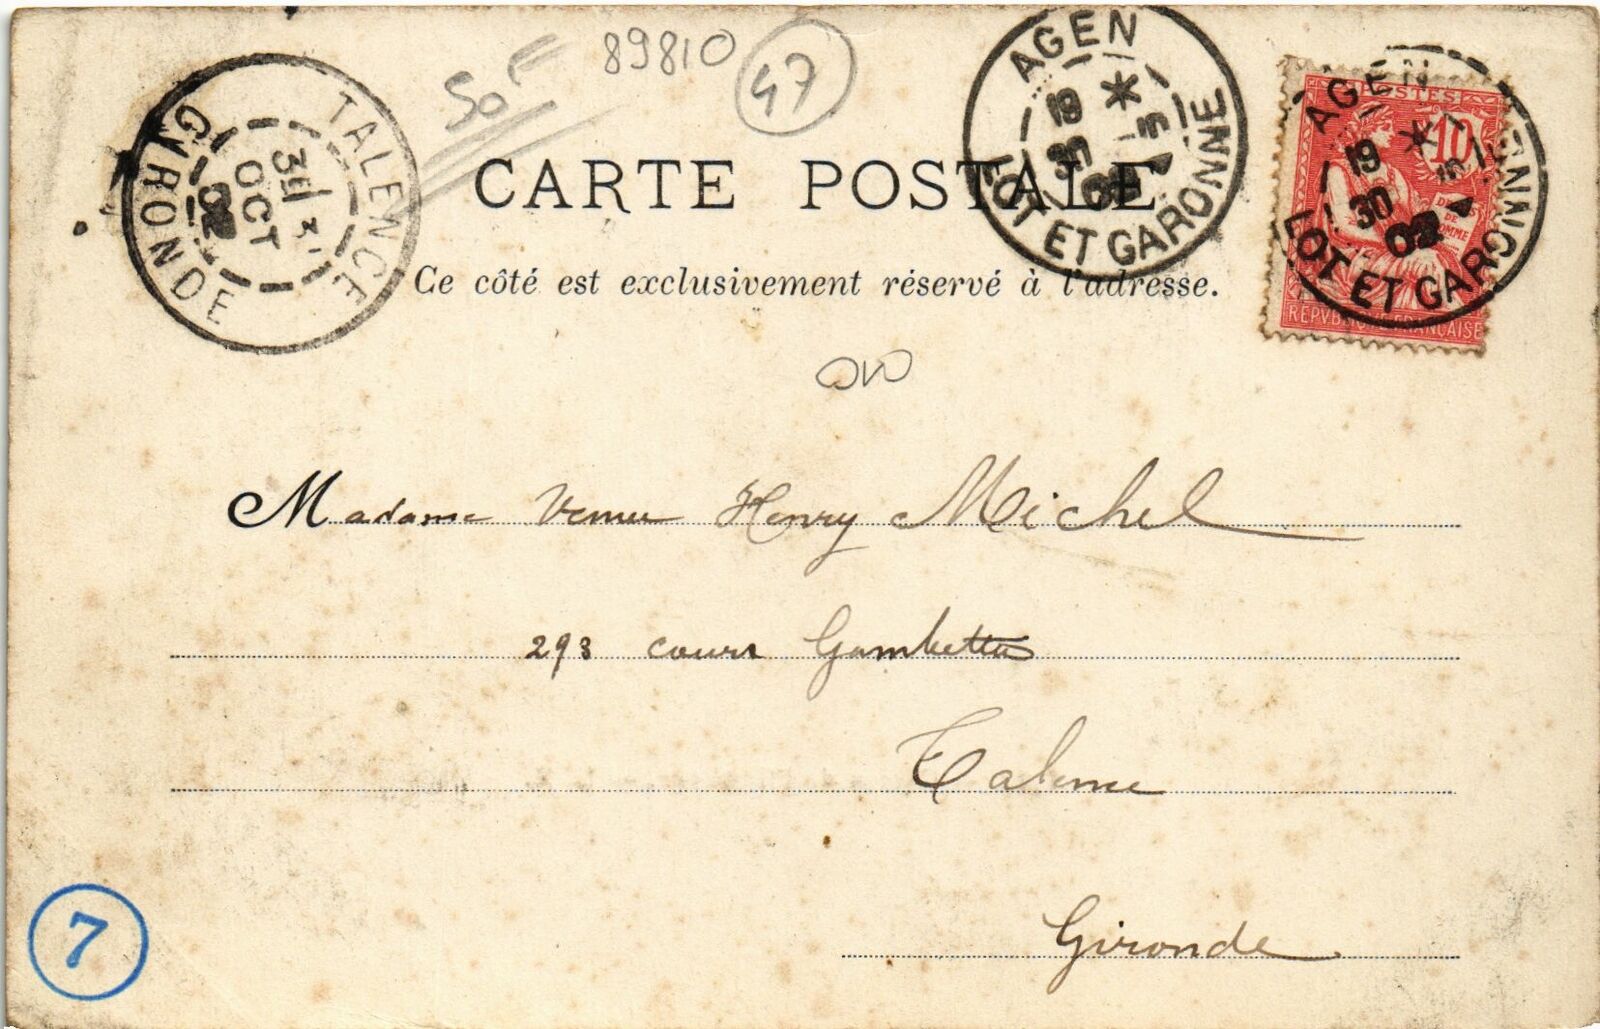 50 F
89810
47
TALENCE
GIRONDE
OCT
02
AGEN
19 *
30 5
02
LOT ET GARONNE
AGEN
19 *
30 5
02
LOT ET GARONNE
POSTES
10
DROITS
DE
HOMME
REPVBLIQVE FRANÇAISE
CARTE POSTALE
Ce côté est exclusivement réservé à l'adresse.
Madame Veuve Henry Michel
293 cours Gambetta
Talence
Gironde
7